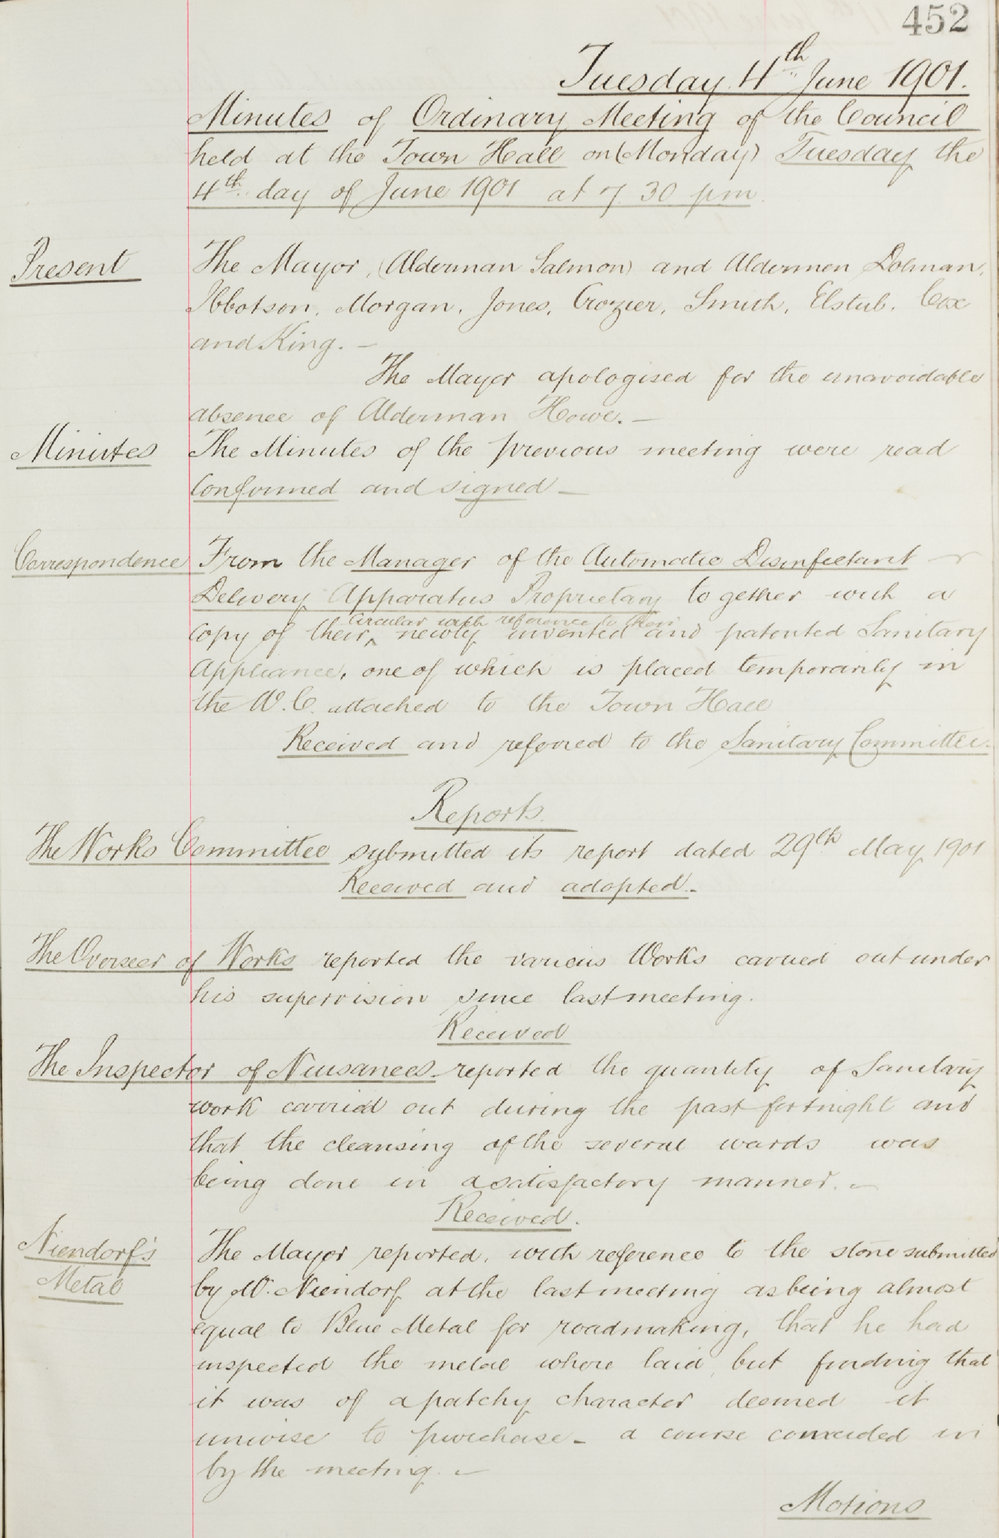 452
Tuesday 4th June 1901.
Minutes of Ordinary Meeting of the Council
held at the Town Hall on (Monday) Tuesday the
4th day of June 1901 at 7 30 pm
Present
The Mayor, (Alderman Salmon) and Aldermen Dolman,
Ibbotson, Morgan, Jones, Crozier, Smith, Elstub, Cox
and King. —
The Mayor apologised for the unavoidable
absence of Alderman Howe. —
Minutes
The Minutes of the previous meeting were read
Confirmed and signed —
Correspondence
From the Manager of the Automatic Disinfectant
Delivery Apparatus Proprietary together with a
circular with reference to their
copy of their ^ newly invented and patented Sanitary
Appliance, one of which is placed temporarily in
the W.C. attached to the Town Hall
Received and referred to the Sanitary Committee.
Reports.
The Works Committee submitted its report dated 29th May 1901
Received and adopted.-
The Overseer of Works reported the various Works carried out under
his supervision since last meeting.
Received
The Inspector of Niusances reported the quantity of Sanitary
work carried out during the past fortnight and
that the cleansing of the several wards was
being done in a satisfactory manner. —
Received.
Niendorf's
Metal
The Mayor reported, with reference to the stone submitted
by W. Niendorf at the last meeting as being almost
equal to Blue Metal for roadmaking, that he had
inspected the metal where laid, but finding that
it was of a patchy character deemed it
unwise to purchase - a course concurred in
by the meeting. —
Motions